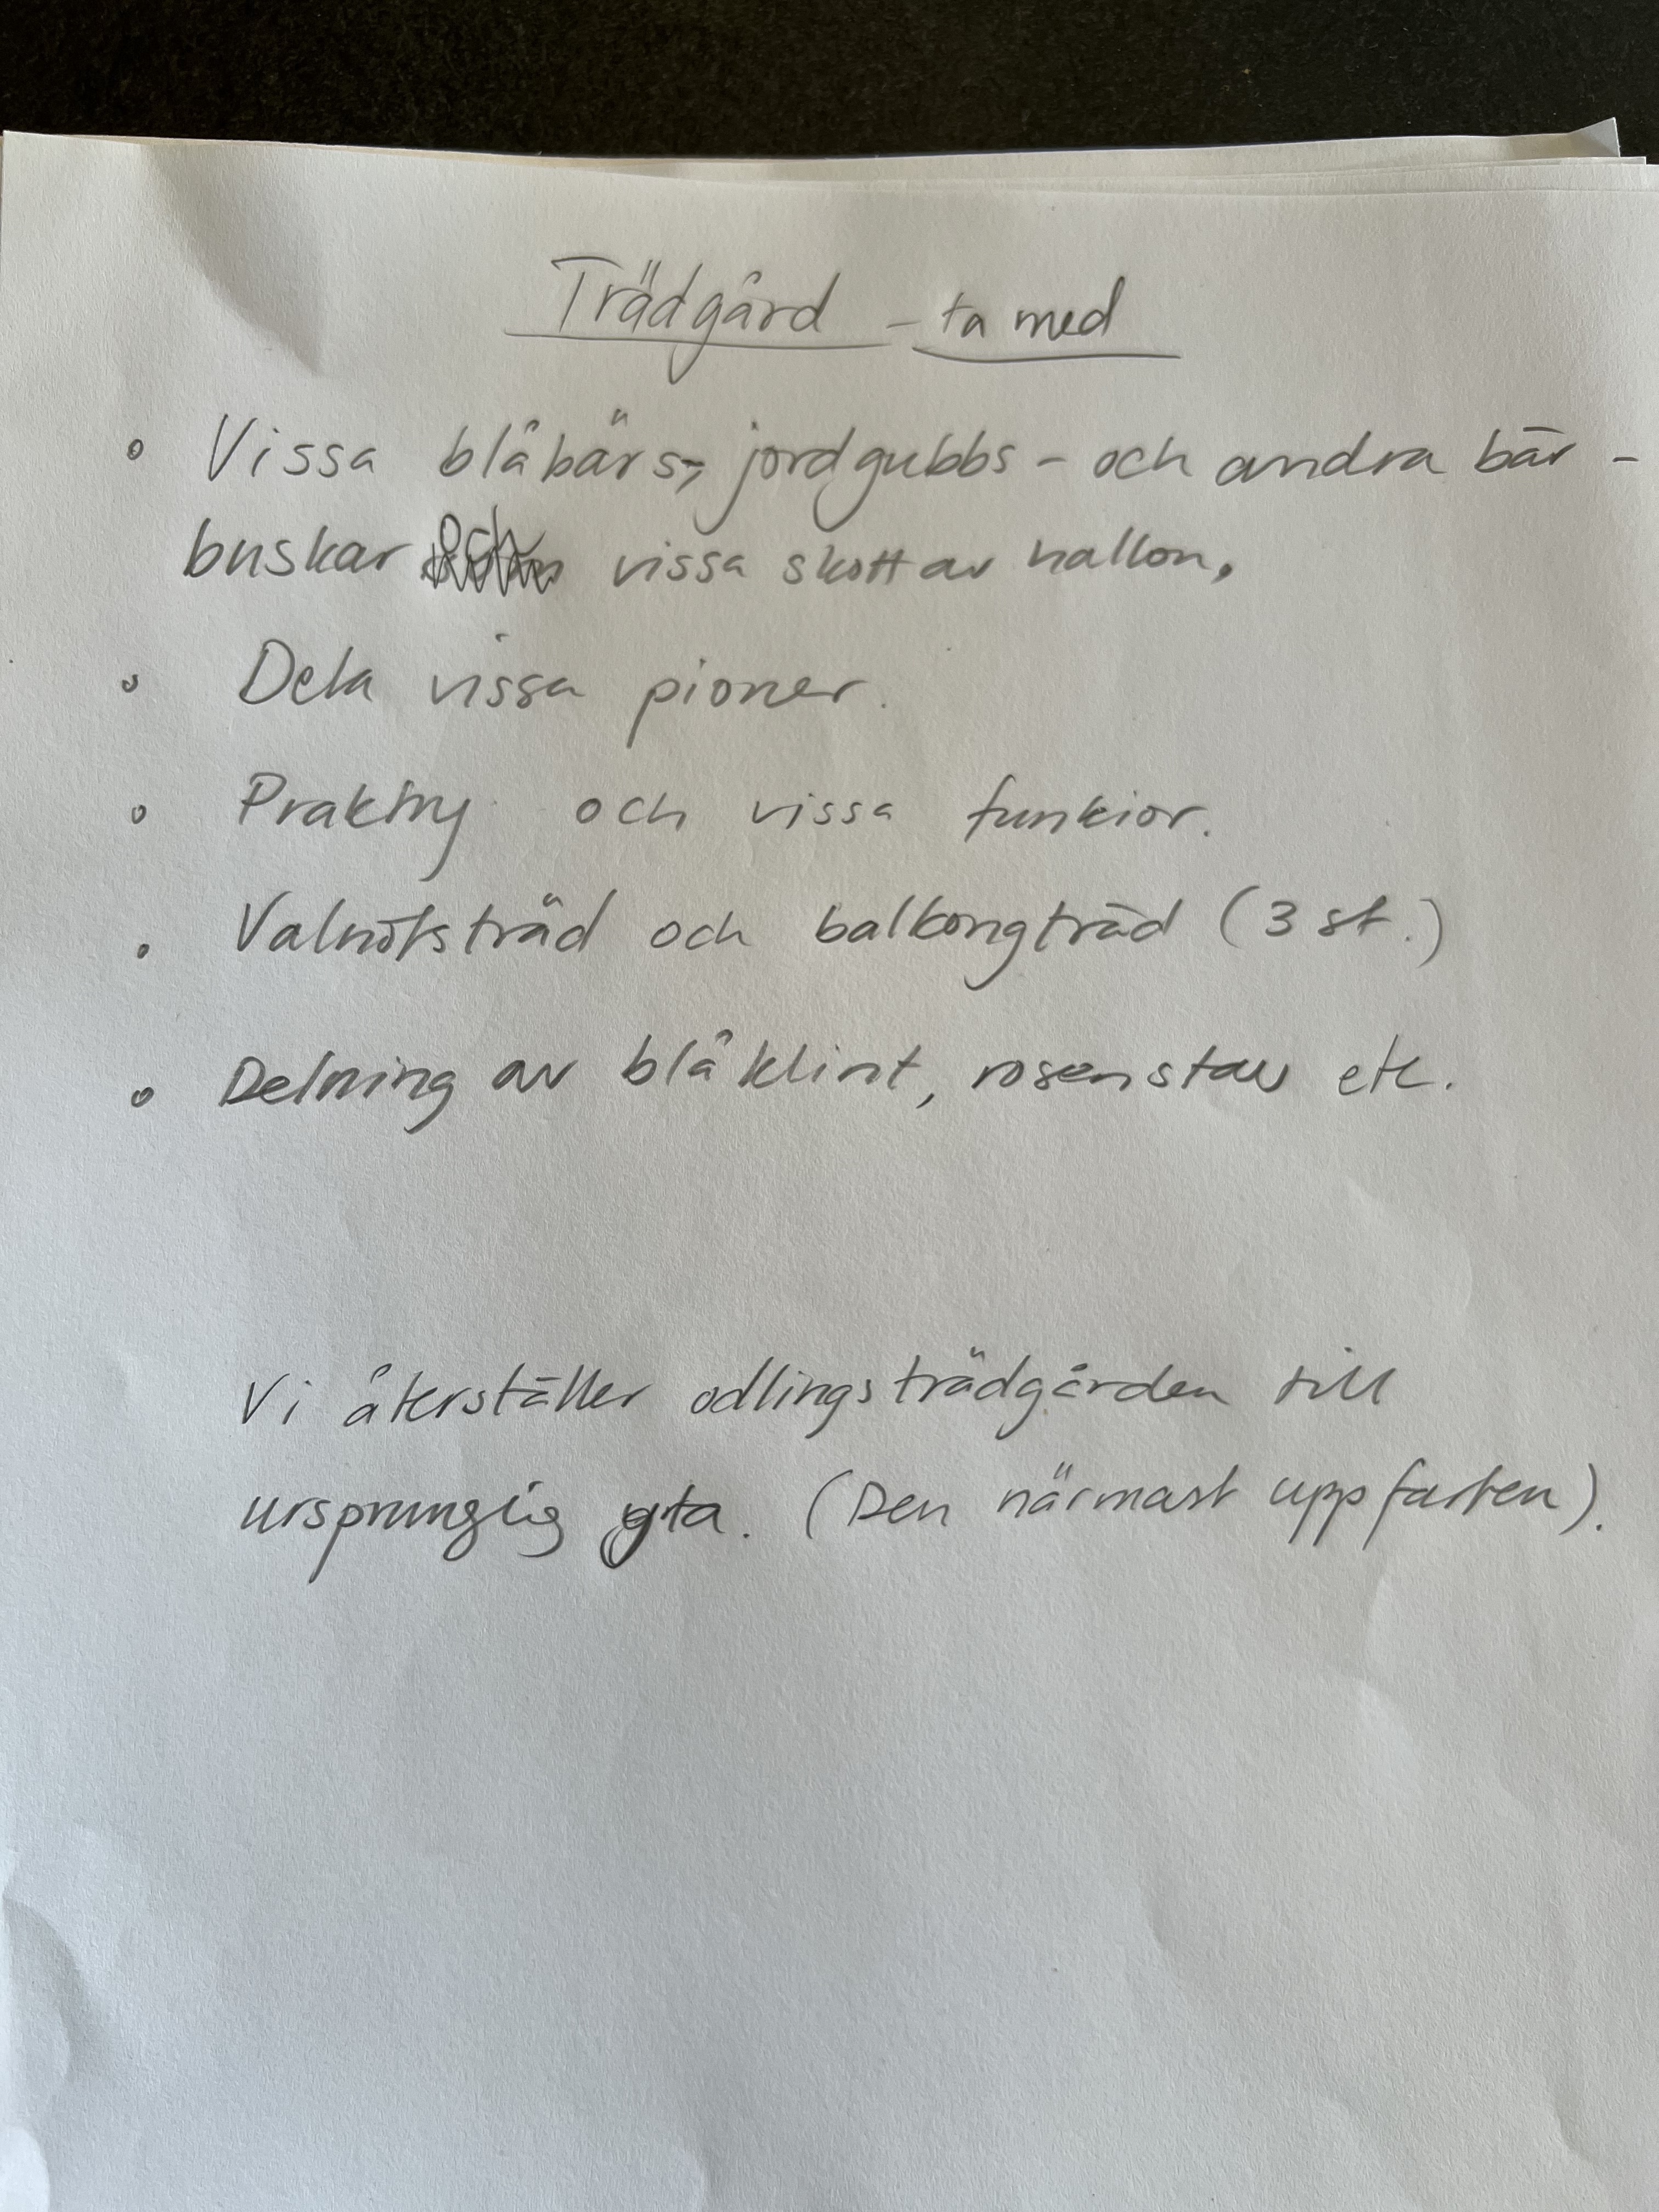 Trädgård - ta med
• Vissa blåbärs-, jordgubbs- och andra bär-
buskar och vissa skott av hallon.
• Dela vissa pioner.
• Praktry och vissa funkior.
• Valnötsträd och balkongträd (3 st.)
• Delning av blåklint, rosenstav etc.
Vi återställer odlingsträdgården till
ursprunglig yta. (Den närmast uppfarten).